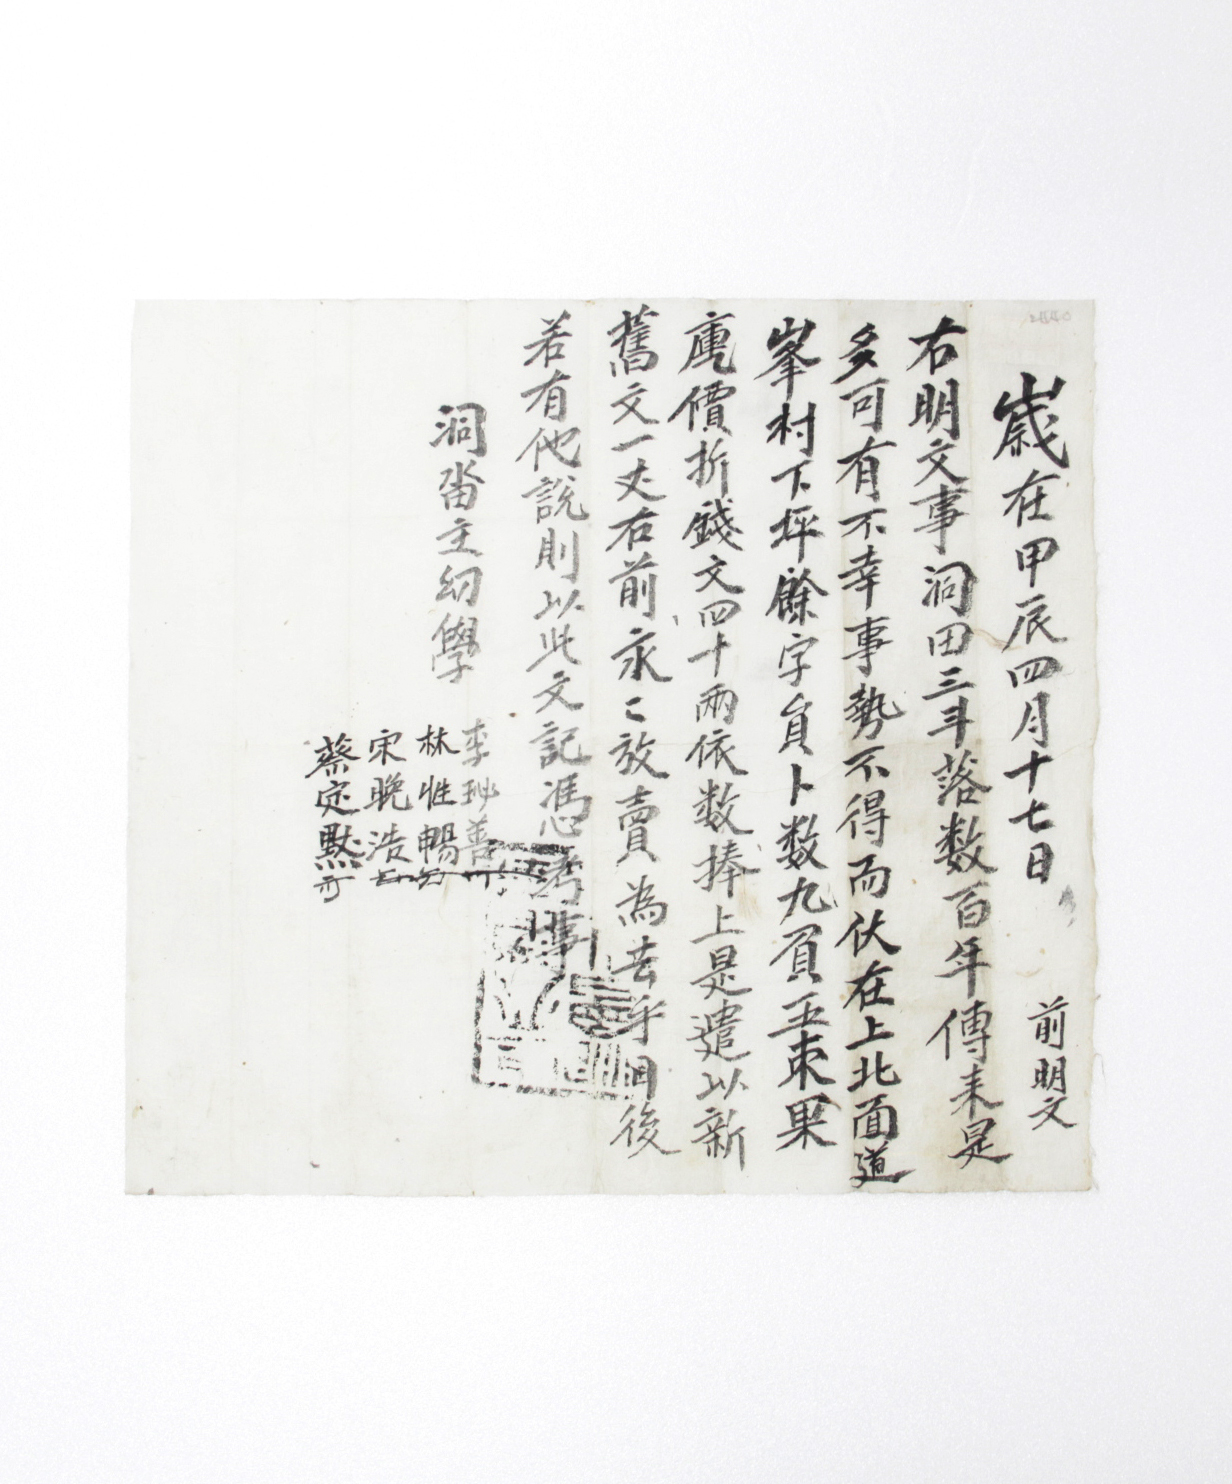 歲在甲辰四月十七日 前明文
右明文事洞田三斗落数百年傳来是
多可有不幸事勢不得而伏在上北面道
峯村下坪餘字員卜数九負五束果
庫價折錢文四十兩依数捧上是遣以新
舊文一丈右前永〻放賣為去乎日後
若有他說則以此文記憑考事
洞畓主幼學
李珌善
林性暢
宋晩浩
蔡定黙